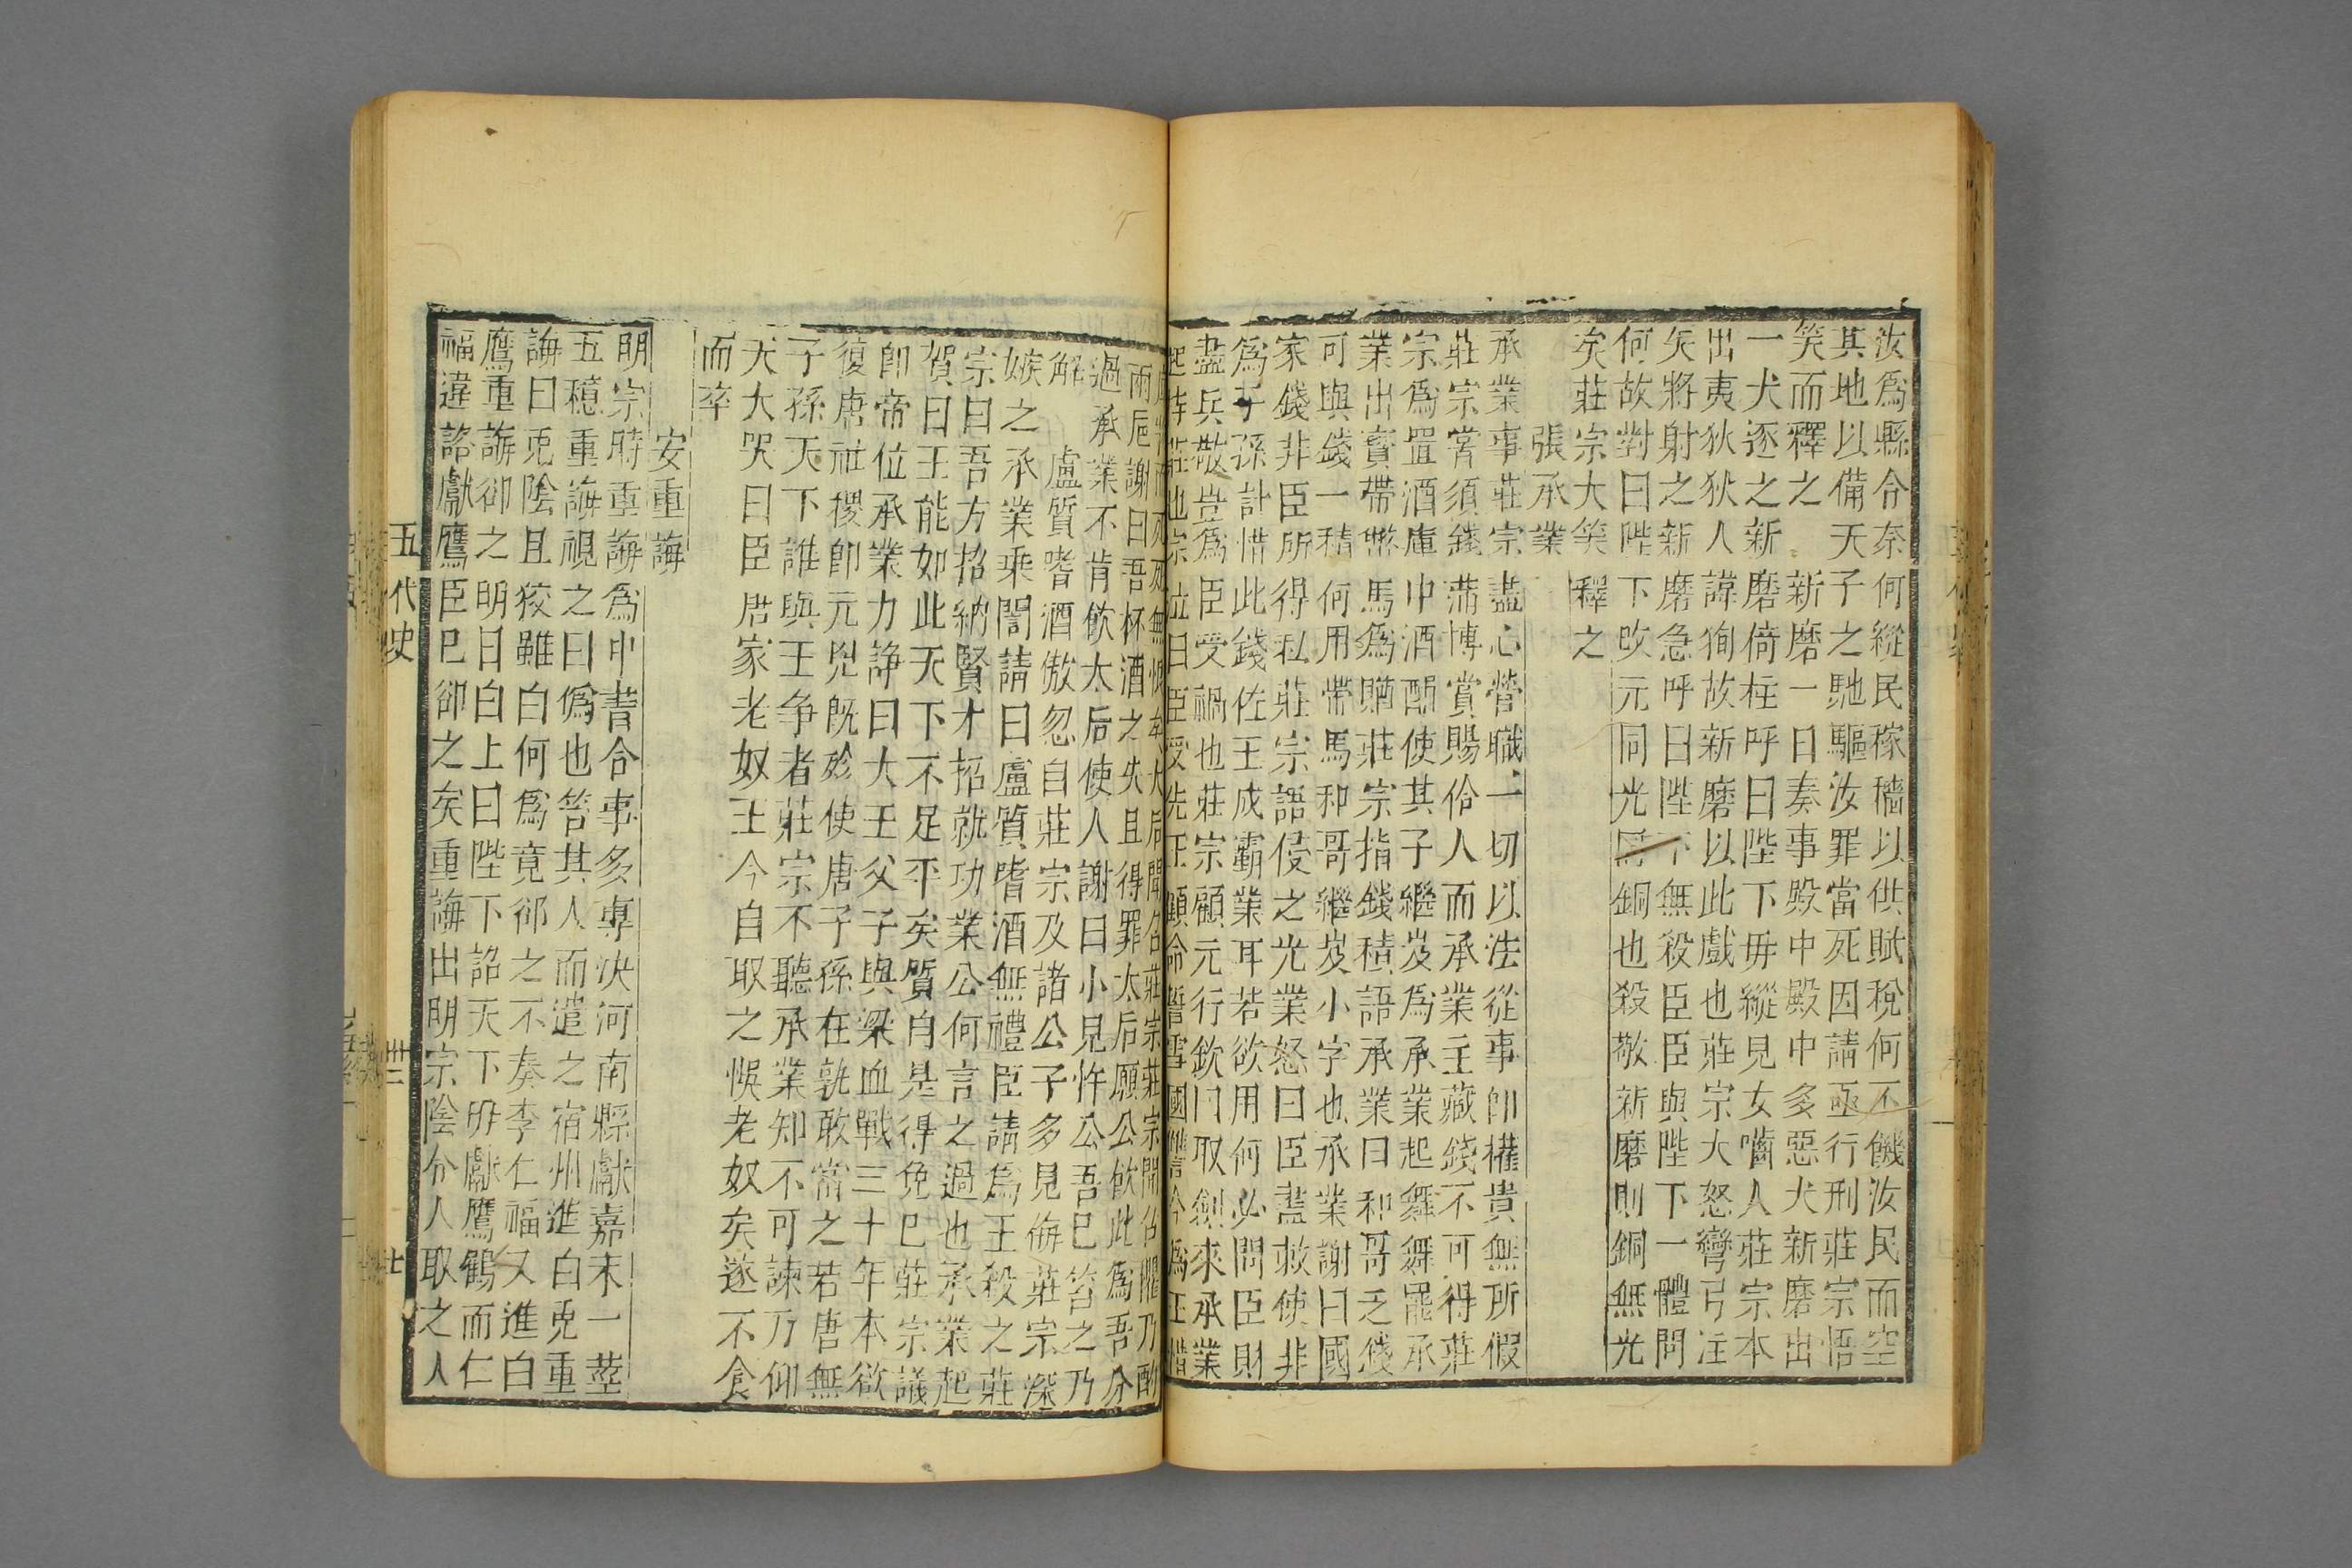 汝爲縣令奈何縱民稼穡以供賦稅何不饑汝民而空
其地以備天子之馳驅汝罪當死因請亟行刑莊宗悟
笑而釋之 新磨一日奏事殿中殿中多惡犬新磨出
一犬逐之新磨倚柱呼曰陛下毋縱兒女嚙人莊宗本
出夷狄狄人諱狗故新磨以此戲也莊宗大怒彎弓注
矢將射之新磨急呼曰陛下無殺臣臣與陛下一體問
何故對曰陛下改元同光同銅也殺敬新磨則銅無光
矣莊宗大笑釋之
張承業
承業事莊宗盡心營職一切以法從事卽權貴無所假
莊宗嘗須錢蒲博賞賜伶人而承業主藏錢不可得莊
宗爲置酒庫中酒酣使其子繼岌爲承業起舞舞罷承
業出寶帶幣馬爲贈莊宗指錢積語承業曰和哥乏錢
可與錢一積何用帶馬和哥繼岌小字也承業謝曰國
家錢非臣所得私莊宗語侵之光業怒曰臣蓋敕使非
爲子孫計惜此錢佐王成霸業耳若欲用何必問臣財
盡兵散豈爲臣受禍也莊宗顧元行欽曰取劍來承業
起持莊 宗泣曰臣受先王顧命誓雪國讐今爲王惜
死無愧矣太后聞召莊宗莊宗聞召懼乃酌
兩卮謝曰吾杯酒之失且得罪太后願公飲此爲吾分
過承業不肯飲太后使人謝曰小兒忤公吾已笞之乃
解 盧質嗜酒傲忽自莊宗及諸公子多見侮莊宗深
嫉之承業乘閒請曰盧質嗜酒無禮臣請爲王殺之莊
宗曰吾方招納賢才招就功業公何言之過也承業起
賀曰王能如此天下不足平矣質自是得免已莊宗議
卽帝位承業力諍曰大王父子與梁血戰三十年本欲
復唐社稷卽元兇旣殄使唐子孫在孰敢當之若唐無
子孫天下誰與王爭者莊宗不聽承業知不可諫乃仰
天大哭曰臣唐家老奴王今自取之悞老奴矣遂不食
而卒
安重誨
明宗時重誨爲中書令事多專決河南縣獻嘉禾一莖
五穗重誨視之曰僞也笞其人而遣之宿州進白兎重
誨曰兎陰且狡雖白何爲竟郤之不奏李仁福又進白
鷹重誨卻之明日白上曰陛下詔天下毋獻鷹鷂而仁
福違詔獻鷹臣已卻之矣重誨出明宗陰令人取之人
五代史 卅二 廿